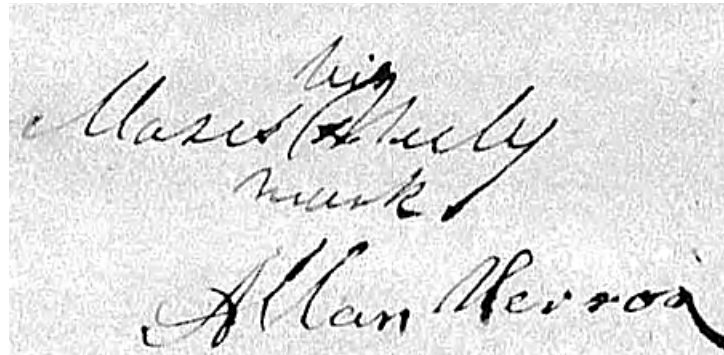 his
Moses X Sheely
mark
Allan Herron